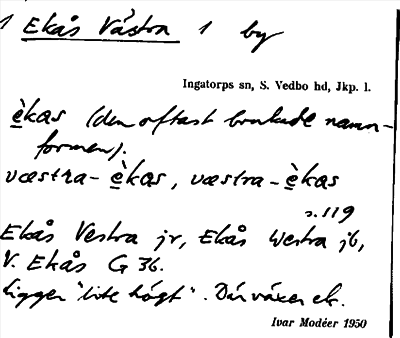 1 Ekås Västra 1 by
Ingatorps sn, S. Vedbo hd, Jkp. l.
èkas (den oftast brukade namn-
formen).
væstra-èkas, væstra-èkas
s. 119
Ekås Vestra jr, Ekås Westra jb,
V. Ekås G 36.
Ligger "lite högt". Där växer ek.
Ivar Modéer 1950